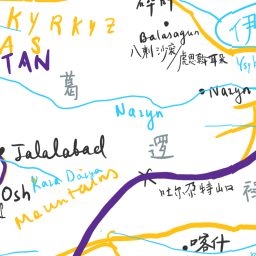 KYRKYZ
AS
TAN
Balasagun
八剌沙衮
虎思斡耳朵
伊
Ysy
葛
Naryn
Naryn
逻
Jalalabad
Osh
Kara Dariya
Mountains
吐尔尕特山口
喀什